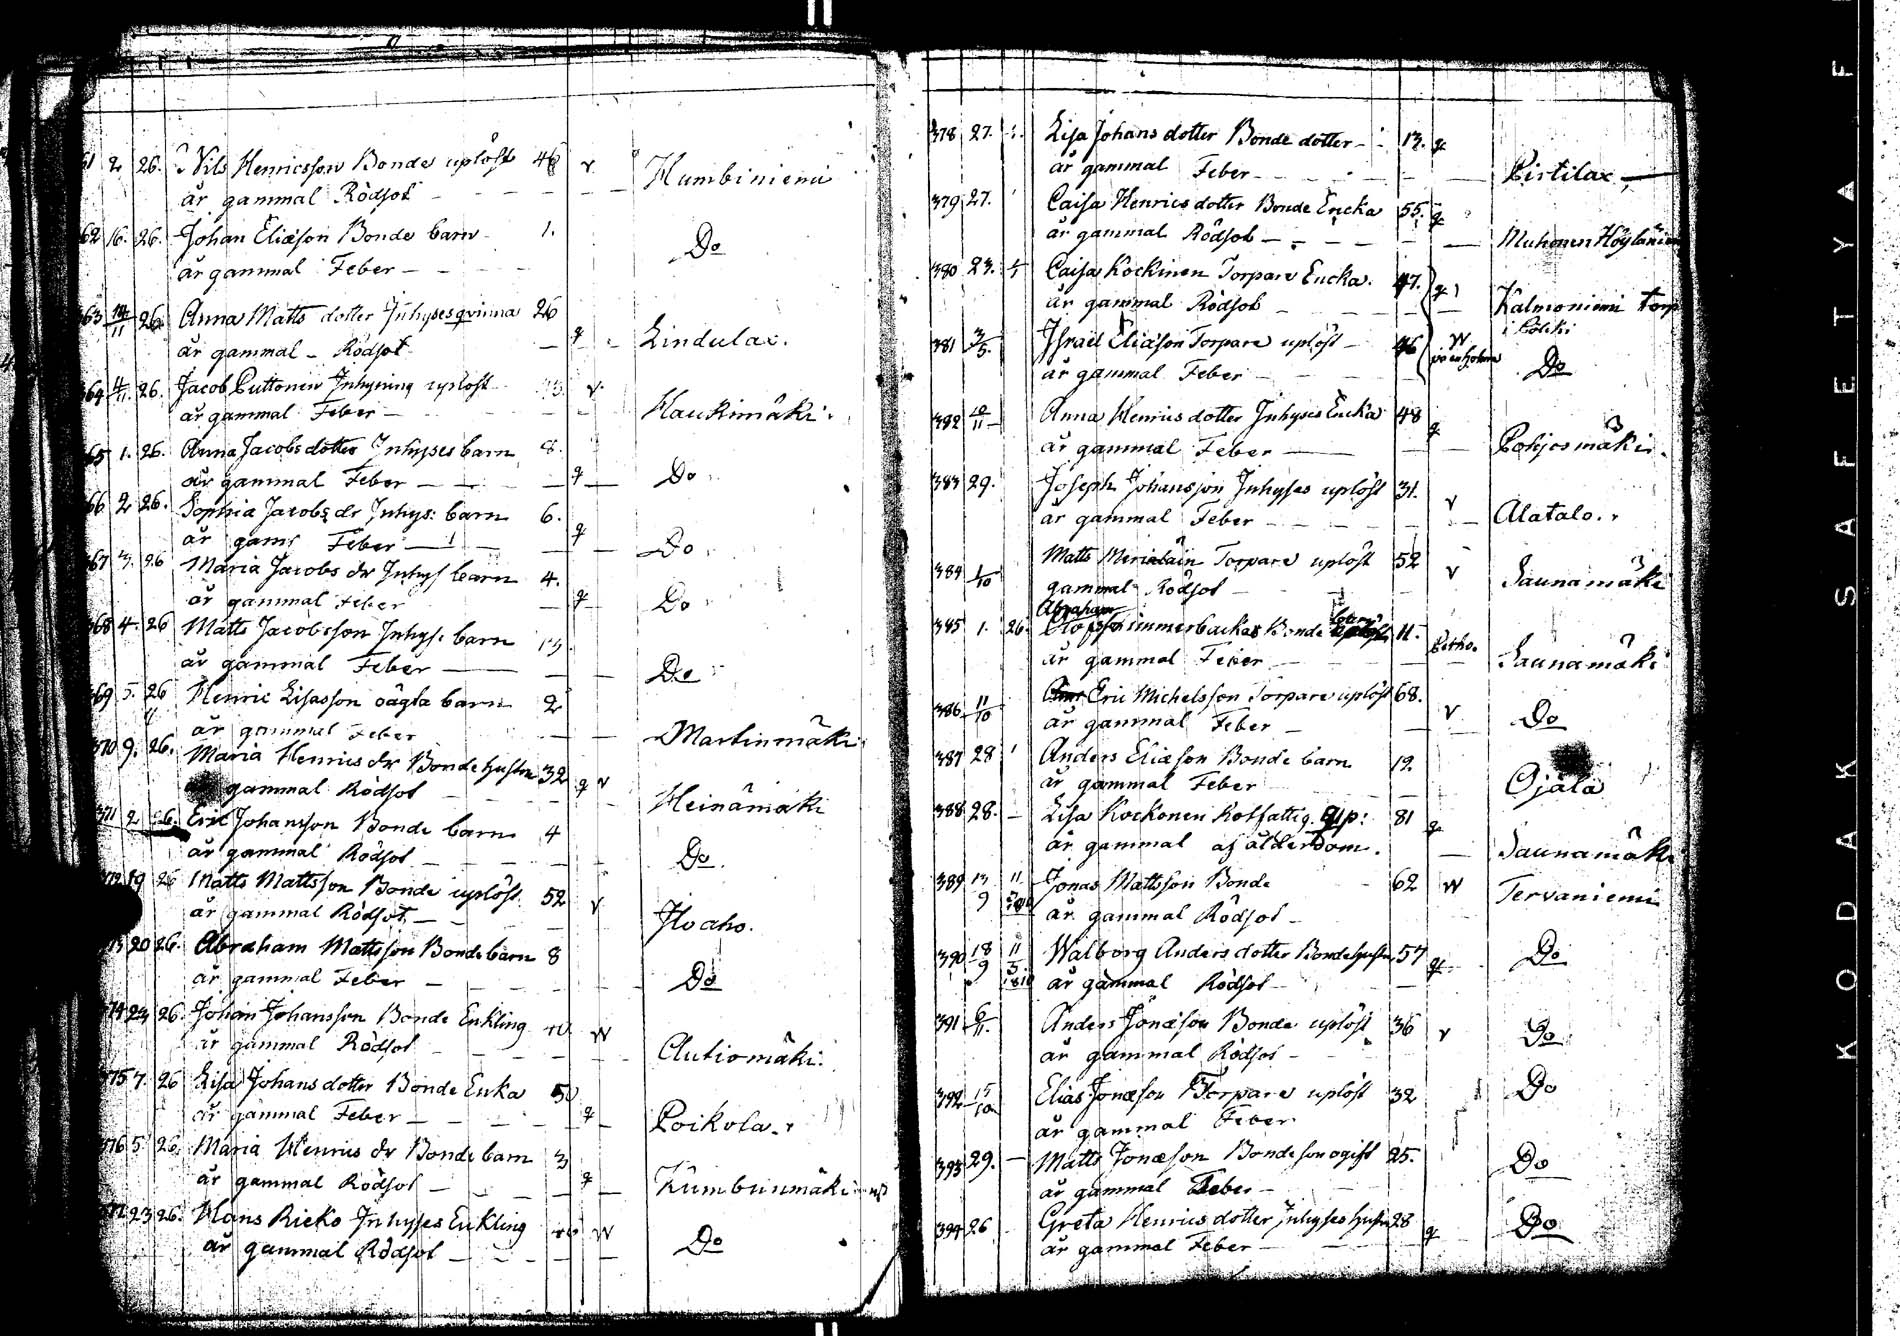 61 2 26. Nils Henricsson Bonde uplöst 46 v
år gammal Rödsot Humbiniemi
62 16. 26. Johan Eliæson Bonde barn 1.
år gammal Feber Do
363 14/11 26 Anna Matts dotter Inhysesqvinna 26
år gammal Rödsot q Lindulax.
364 4/11. 26. Jacob Puttonen Inhysing uplöst v
år gammal Feber Haukimäki.
65 1. 26. Anna Jacobs dotter Inhyses barn 8.
år gammal Feber q Do
66 2 26. Sophia Jacobs dr Inhys: barn 6.
år gaml Feber q Do
367 3. 26 Maria Jacobs dr Inhys barn 4.
år gammal Feber q Do
368 4. 26 Matts Jacobsson Inhys: barn
år gammal Feber Do
369 5. 26 Henric Lisasson oägta barn 2
år gammal Feber Martinmäki
370 9. 26. Maria Henrics dr Bonde hustru 32 q v
gammal Rödsot Heinämäki
371 2 26. Eric Johansson Bonde barn 4
år gammal Rödsot Do
372 19 26 Matts Mattsson Bonde uplöst. 52 v
år gammal Rödsot Ihoaho.
373 20 26. Abraham Mattsson Bonde barn 8
år gammal Feber Do
374 23 26. Johan Johansson Bonde Enkling W
år gammal Rödsot Autiomäki.
375 7. 26 Lisa Johans dotter Bonde Enka 50
år gammal Feber q Poikola.
376 5 26. Maria Henrics dr Bonde barn 3
år gammal Rödsot q Kumbunmäki
377 23 26. Hans Rieko Inhyses Enkling W
år gammal Rödsot Do
378 27. Lisa Johans dotter Bonde dotter 13. q
år gammal Feber Pirtilax
379 27. Caisa Henrics dotter Bonde Encka 55. q
år gammal Rödsot Muhonen Höylänien
380 23. Caisa Kockinen Torpare Encka. 47. q
år gammal Rödsot Kalmoniemi torp
381 3/5. Israel Eliæson Torpare uplöst 46 W
år gammal Feber Do
382 12/11 Anna Henrics dotter Inhyses Encka 48 q
år gammal Feber Pohjosmäki.
383 29. Joseph Johansson Inhyses uplöst 31. v
år gammal Feber Alatalo.
384 1/10 Matts Meriläin Torpare uplöst 52 v
gammal Rödsot Saunamäki
Abraham
385 1. 26. Bonde 11.
år gammal Feber Saunamäki
386 11/10 Eric Michelsson Torpare uplöst 68. v
år gammal Feber Do
387 28 Anders Eliæson Bonde barn 12
år gammal Feber Ojala
388 28. Lisa Kockonen Rotfattig 81 q
år gammal af ålderdom. Saunamäki
389 13/9 11/3 1810 Jonas Mattsson Bonde 62 W Tervaniemi
år gammal Rödsot
390 18/9 11/3 1810 Walborg Anders dotter Bonde hustru 57 q Do
år gammal Rödsot
391 6/11. Anders Jonæson Bonde uplöst 36 v Do
år gammal Rödsot
392 15/10 Elias Jonæson Torpare uplöst 32 Do
år gammal Feber
393 29. Matts Jonæson Bonde son ogift 25. Do
år gammal Feber
394 26 Greta Henrics dotter Inhyses hustru 28 q Do
år gammal Feber
KODAK SAFETY A F